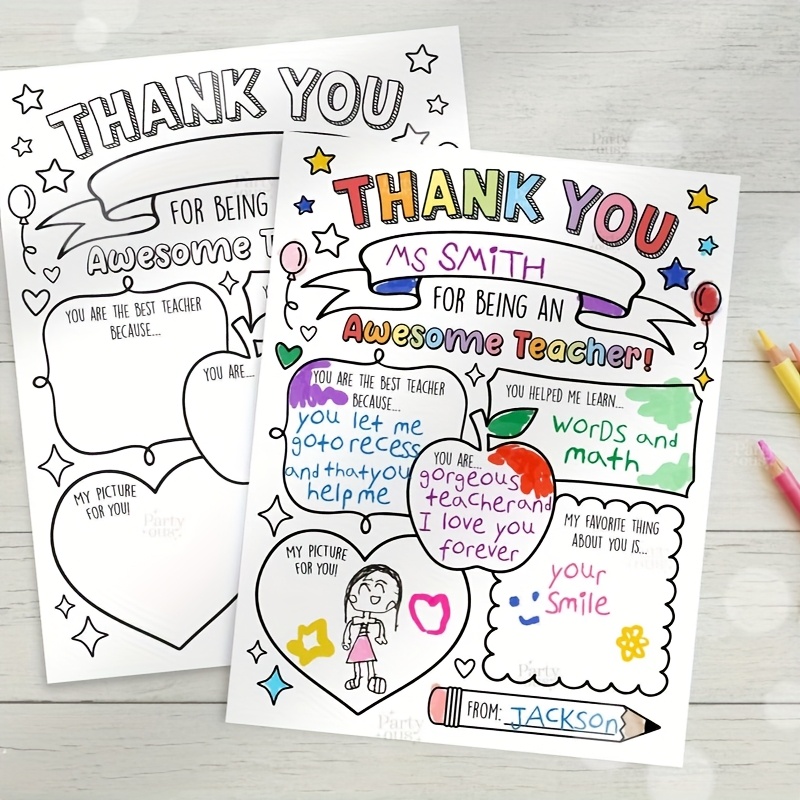 THANK YOU
FOR BEING
Awesome T
YOU ARE THE BEST TEACHER
BECAUSE...
YOU ARE...
MY PICTURE
FOR YOU!
THANK YOU
MS SMITH
FOR BEING AN
Awesome Teacher!
YOU ARE THE BEST TEACHER
BECAUSE...
you let me
goto recess
and that you
help me
YOU HELPED ME LEARN...
words and
math
YOU ARE...
gorgeous
teacher and
I love you
forever
MY FAVORITE THING
ABOUT YOU IS...
your
Smile
MY PICTURE
FOR YOU!
FROM: JACKSON